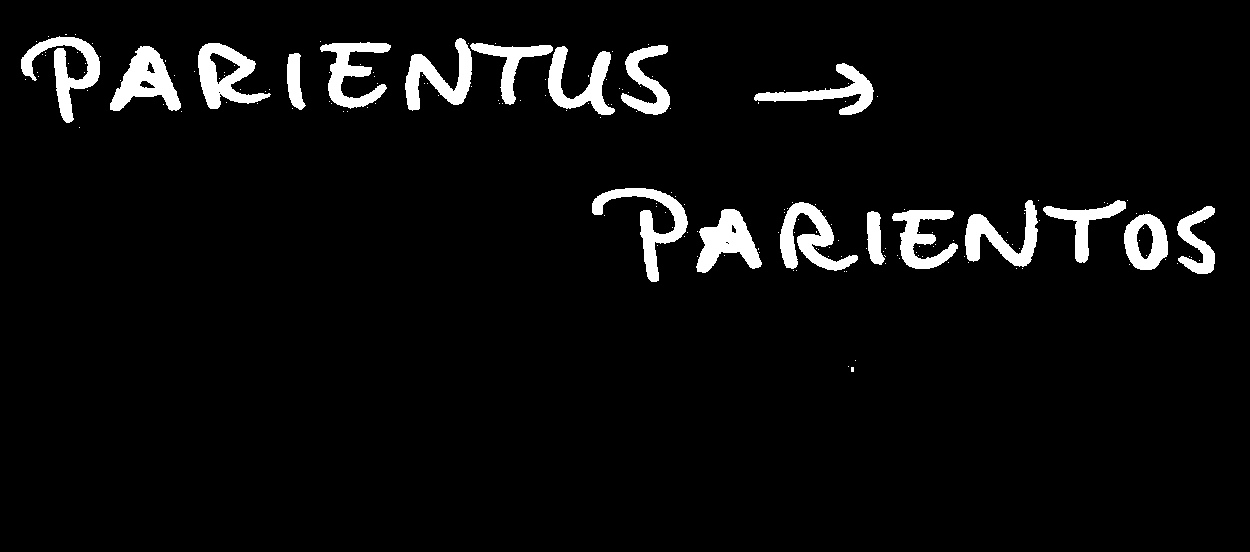 PARIENTUS →
PARIENTOS